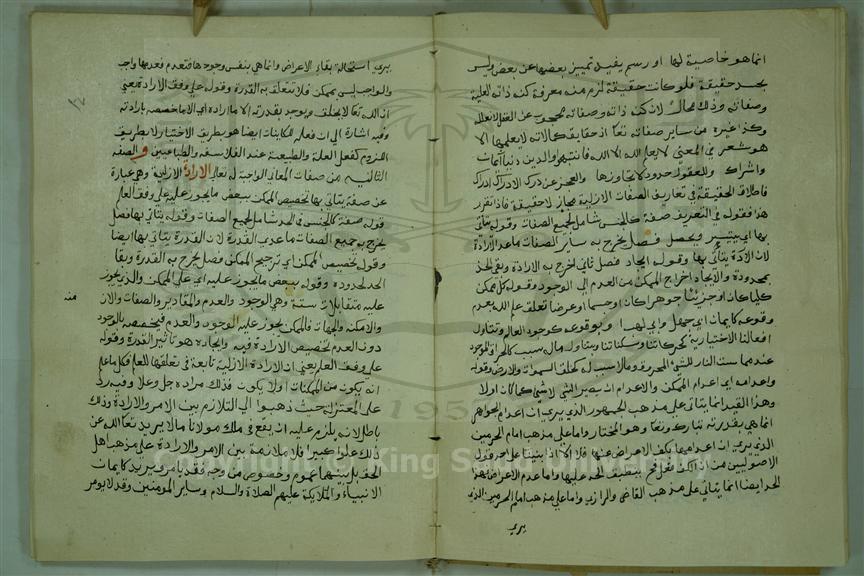 انما هو خاصية لها او رسم يفيد تمييز بعضها عن بعض وليس
بحد حقيقة فلو كانت حقيقة لزم منه معرفة كنه ذاته العلية
وصفاته وذلك محال لان كنه ذاته وصفاته محجوب عن العقل لا نعلمه
وكذا غيره من ساير صفاته تعا اذ حقايق كمالاته لا يعلمها الا
هو شعر في المعنى لا يعلم الله الا الله فانتبهوا والدين دنيا ايمان
واشراك وللعقول حدود لا تجاوزها والعجز عن درك الادراك ادراك
فاطلاق الحقيقة في تعاريف الصفات الازلية مجاز لا حقيقة فاذا تقرر
هذا فقوله في التعريف صفة كالجنس شامل لجميع الصفات وقوله يتأتى
بها اي يتيسر ويحصل فصل يخرج به ساير الصفات ما عد الارادة
لان الارادة يتأتى بها وقوله ايجاد فصل ثاني يخرج به الارادة وبقى الحد
بمحدودة والايجاد اخراج الممكن من العدم الى الوجود وقوله كل ممكن
كليا كان او جزئيا جوهرا كان او جسما او عرضا تعلق علم الله بعدم
وقوعه كايمان ابي جهل وابي لهب او بوقوعه كوجود العالم وتناول
افعالنا الاختيارية كحركاتنا وسكناتنا ويتناول ماله سبب كالحرق الموجود
عند مماسة النار للشئ المحرق وما لا سبب له كخلق السموات والارض وقوله
واعدامه اي اعدام الممكن والاعدام ان يصير الشئ لا شئ كما كان اولا
وهذا القيد انما يتاتى على مذهب الجمهور الذي يرى ان اعدام الجواهر
انما هي بقدرته تبارك وتعا وهو المختار واما على مذهب امام الحرمين
الذي يرى ان اعدامها بكف الاعراض عنها فلا الا اذا بنينا على احد قول
الاصوليين من ان الكف فعل فح ينطبق الحد عليها واما عدم الاعراض بهذا
الحد ايضا انما يتاتى على مذهب القاضي والرازي واما على مذهب امام الحرمين الذي
يرى
يرى استحالة بقاء الاعراض وانما هي بنفس وجودها تنعدم فعدمها واجب
والواجب ليس بممكن فلا تتعلق به القدرة وقوله على وفق الارادة يعني
ان الله تعا لا يخلق ويوجد بقدرته الا ما اراده اي الا ما خصصه بارادته
وفيه اشارة الى ان فعله للكاينات ايضا هو بطريق الاختيار لا بطريق
اللزوم كفعل العلة والطبيعة عند الفلاسفة والطبائعيين والصفة
الثانية من صفات المعاني الواجبة له تعالى الارادة الازلية وهي عبارة
عن صفة يتأتى بها تخصيص الممكن ببعض ما يجوز عليه على وفق العلم
قوله صفة كالجنس في الحد شامل لجميع الصفات وقوله يتأتى بها فصل
يخرج به جميع الصفات ما عدى القدرة لان القدرة يتأتى بها ايضا
وقوله تخصيص الممكن اي ترجيح الممكن فصل يخرج به القدرة وبقا
الحد لمحدوده وقوله ببعض ما يجوز عليه اي على الممكن والذي يجوز
عليه متقابلات ستة وهي الوجود والعدم والمقادير والصفات والازـ
منه
والامكنة والجهات فالممكن يجوز عليه الوجود والعدم فيخصصه بالوجود
دون العدم لتخصيص الارادة فيه وايجاده هو تاثير القدرة وقوله
على وفق العلم يعني ان الارادة الازلية تابعة في تعلقها للعلم فكل ما علم
انه يكون من الممكنات او لا يكون فذلك مراده جل وعلا وفيه رد
على المعتزلة حيث ذهبوا الى التلازم بين الامر والارادة وذلك
باطل لانه يلزم عليه ان يقع في ملك مولانا ما لا يريد تعا الله عن
ذلك علوا كبيرا فلا ملازمة بين الامر والارادة على مذهب اهل
الحق بل بينهما عموم وخصوص من وجه فقد يامر ويريد كايمان
الانبياء والملايكة عليهم الصلاة والسلام وساير المومنين وقد لا يومر
Copyright © King Saud University
1957